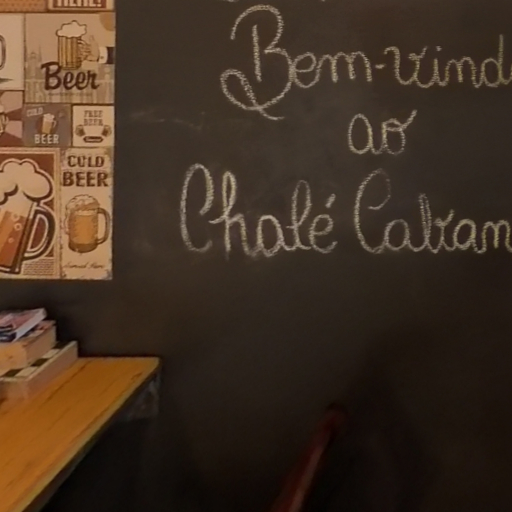 Beer
COLD
BEER
FREE
BEER
COLD
BEER
Bem-vind
ao
Chalé Caban